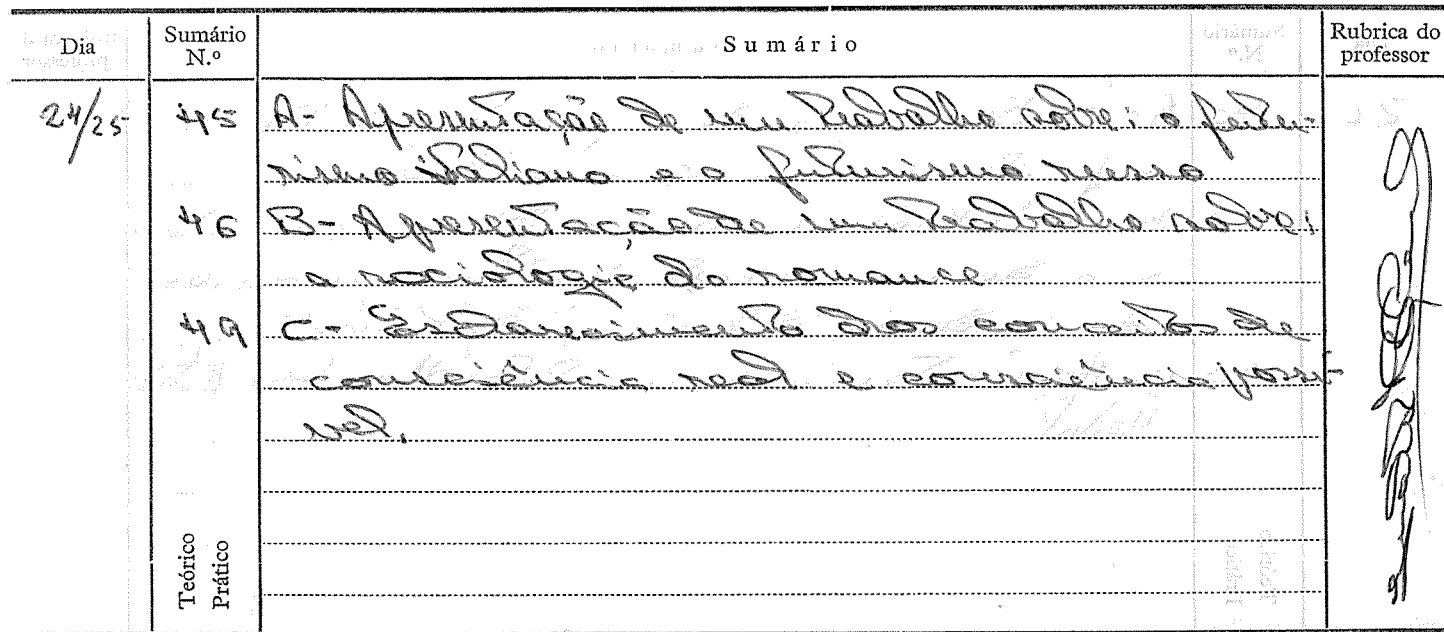 Dia Sumário N.º Sumário Rubrica do professor
24/25 45 A- Apresentação de um trabalho sobre: o futu-
rismo italiano e o futurismo russo
46 B- Apresentação de um trabalho sobre:
a sociologia do romance
49 C- Esclarecimento dos conceitos de
consciência real e consciência possí-
vel.
Teórico
Prático